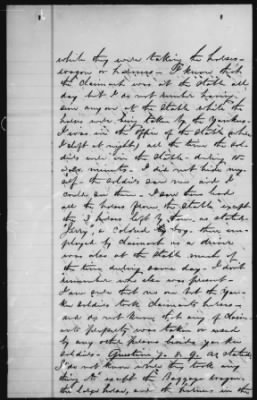 while they were taking the horses
wagon or harness - I know that
the Claimant was at the Stable all
day but I do not remember having
seen any one at the Stable while the
horses were being taken by the Yankees.
I was in the Office of the Stable (where
I slept at night) all the time the Sol-
diers were in the Stable - during 10
minutes - I did not hide my
self - the soldiers saw me and I
could see them -
all the horses from the Stable except
the 3 horses left by them, as stated
"Jerry", a colored boy then em-
ployed by Claimant as a driver
was also at the Stable much of
the time during same day. I don't
remember who else was present -
I am sure that no one but the Yan-
kee soldiers took Claimants horses -
and do not know that any of Claim-
ants property was taken or used
by any other persons besides Yankee
soldiers - Question
I do not know where they took any
thing except the Baggage Wagon,
the and the in the